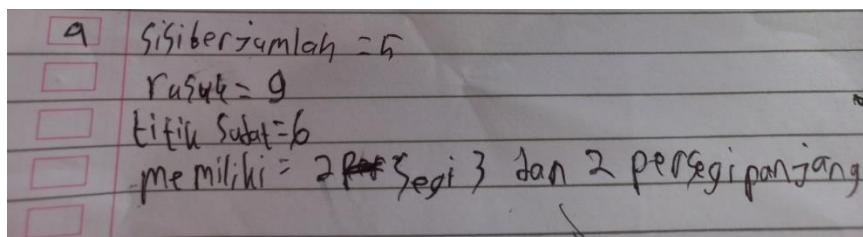 a sisi berjumlah = 5
rusuk = 9
titik sudut = 6
memiliki = 2 segi 3 dan 2 persegi panjang